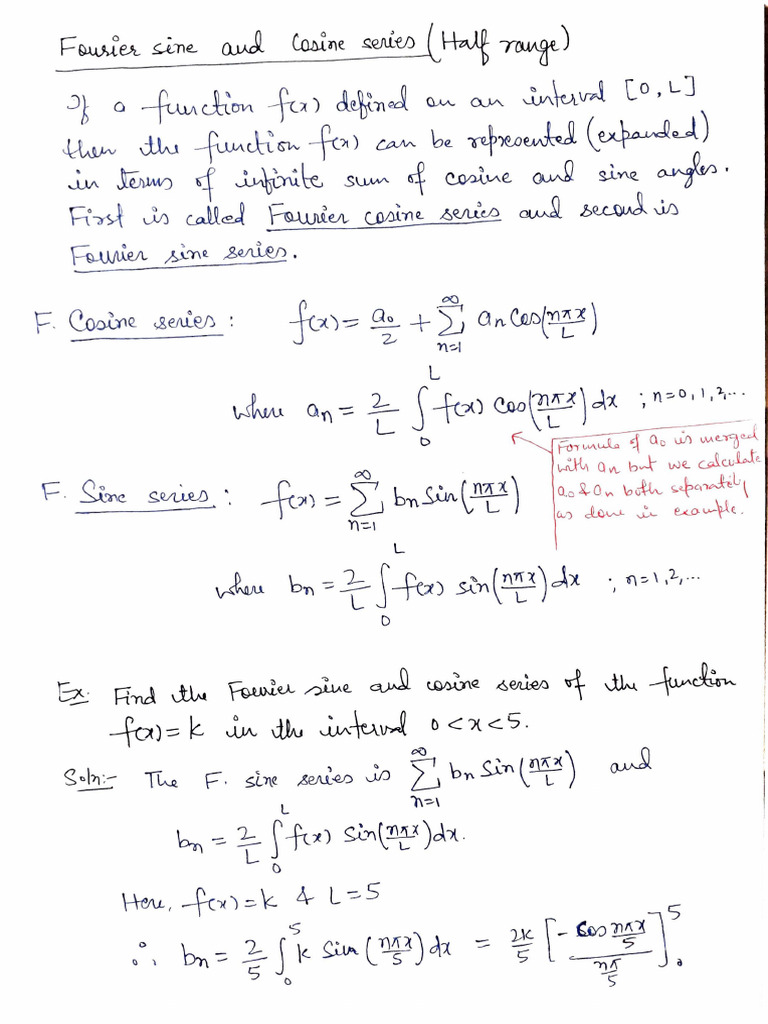 Fourier sine and Cosine series (Half range)
If a function f(x) defined on an interval [0, L]
then the function f(x) can be represented (expanded)
in terms of infinite sum of cosine and sine angles.
First is called Fourier cosine series and second is
Fourier sine series.
F. Cosine series : f(x) = a₀/2 + ∑_{n=1}^{∞} an Cos(nπx/L)
where an = 2/L ∫_0^L f(x) cos(nπx/L) dx ; n=0,1,2,...
Formula of a₀ is merged
with an but we calculate
a₀ & an both separately
as done in example.
F. Sine series : f(x) = ∑_{n=1}^{∞} bn Sin(nπx/L)
where bn = 2/L ∫_0^L f(x) sin(nπx/L) dx ; n=1,2,...
Ex. Find the Fourier sine and cosine series of the function
f(x) = k in the interval 0<x<5.
Soln:- The F. sine series is ∑_{n=1}^{∞} bn Sin(nπx/L) and
bn = 2/L ∫_0^L f(x) Sin(nπx/L) dx.
Here, f(x) = k & L=5
∴ bn = 2/5 ∫_0^5 k Sin(nπx/5) dx = 2k/5 [-Cos nπx/5 / nπ/5]_0^5